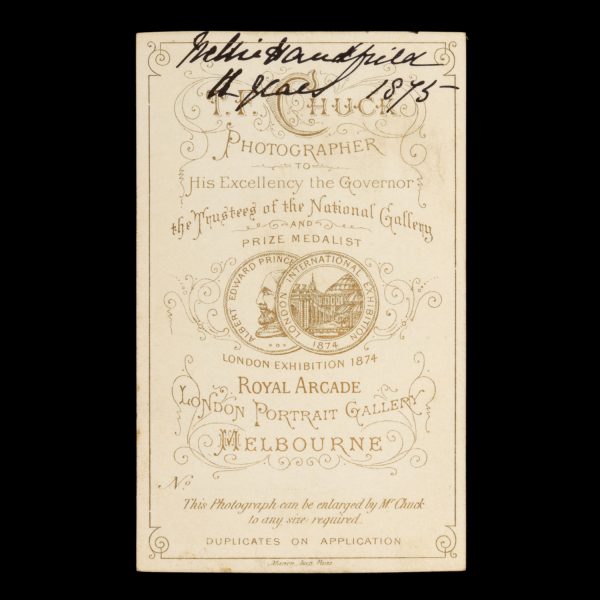 Nellie Handfield
years 1875
T. F. CHUCK
PHOTOGRAPHER
TO
His Excellency the Governor
the Trustees of the National Gallery
AND
PRIZE MEDALIST
ALBERT EDWARD PRINCE
LONDON INTERNATIONAL EXHIBITION
1874
LONDON EXHIBITION 1874
ROYAL ARCADE
LONDON PORTRAIT GALLERY
MELBOURNE
No.
This Photograph can be enlarged by Mr Chuck
to any size required.
DUPLICATES ON APPLICATION